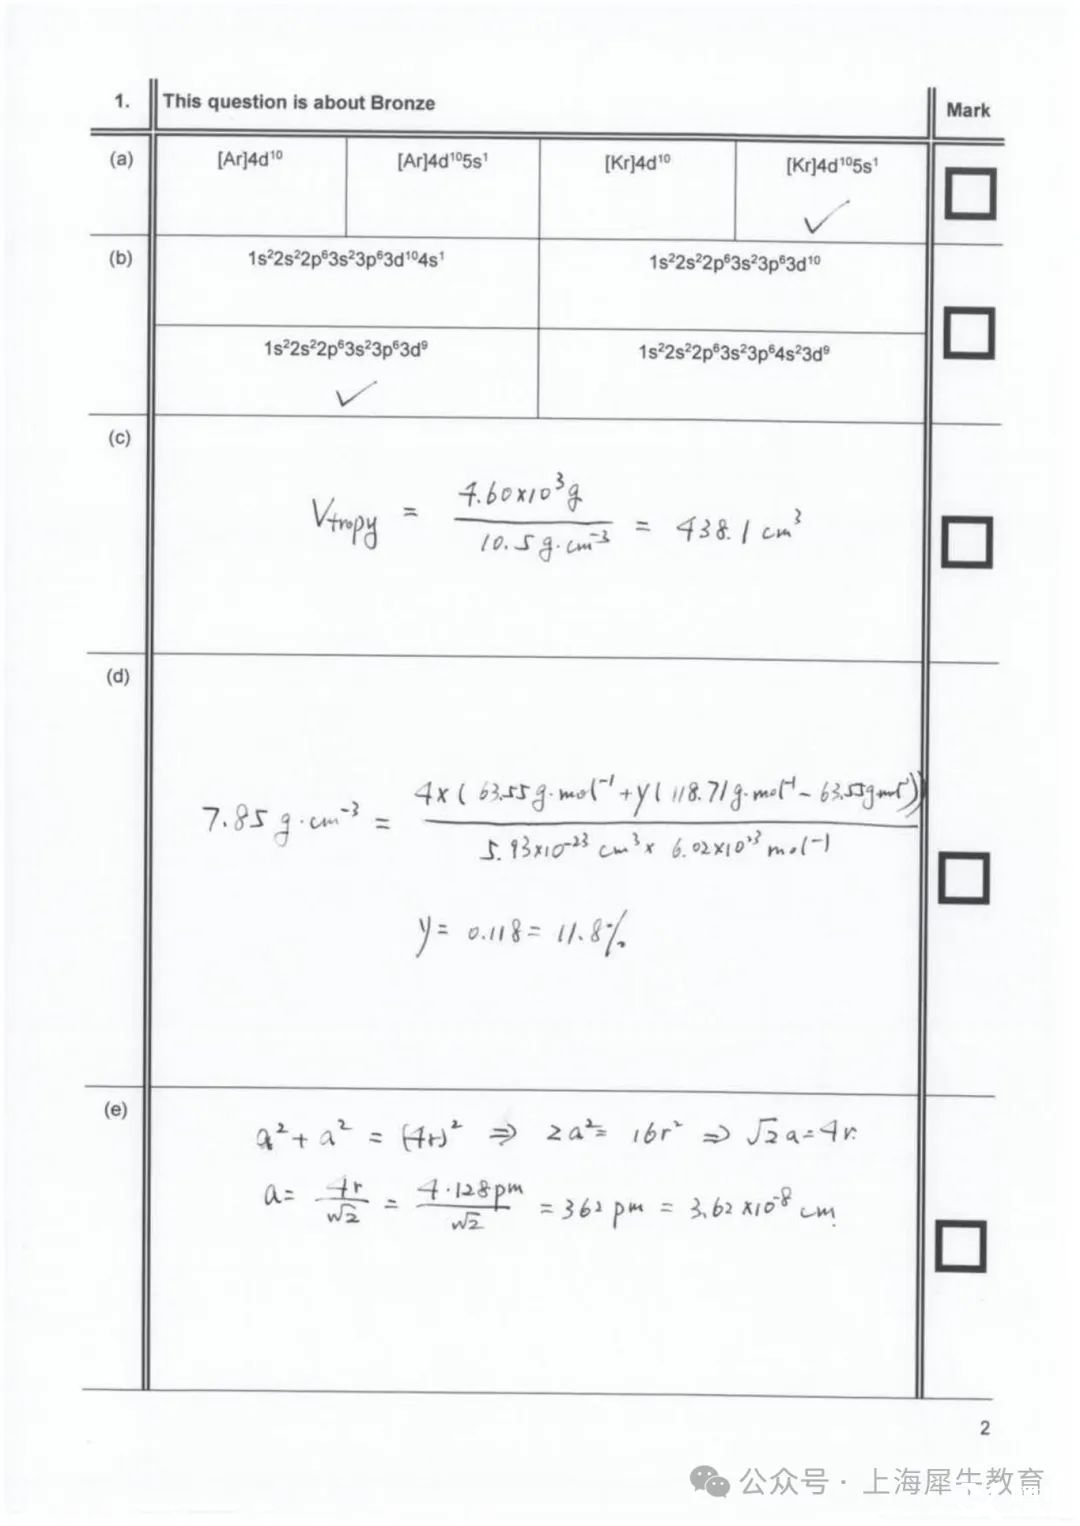 1. This question is about Bronze Mark
(a) [Ar]4d¹⁰ [Ar]4d¹⁰5s¹ [Kr]4d¹⁰ [Kr]4d¹⁰5s¹
✓
(b) 1s²2s²2p⁶3s²3p⁶3d¹⁰4s¹ 1s²2s²2p⁶3s²3p⁶3d¹⁰
1s²2s²2p⁶3s²3p⁶3d⁹ 1s²2s²2p⁶3s²3p⁶4s²3d⁹
✓
(c)
Vtropy = 4.60×10³g / 10.5g·cm⁻³ = 438.1 cm³
(d)
7.85 g·cm⁻³ = 4×(63.55g·mol⁻¹+y(118.71g·mol⁻¹-63.55gmol⁻¹)) / 5.93×10⁻²³ cm³ × 6.02×10²³ mol⁻¹
y = 0.118 = 11.8%
(e) a²+a² = (4r)² ⇒ 2a² = 16r² ⇒ √2a=4r.
a= 4r/√2 = 4·128pm/√2 = 362 pm = 3.62×10⁻⁸ cm.
2
公众号 · 上海犀牛教育